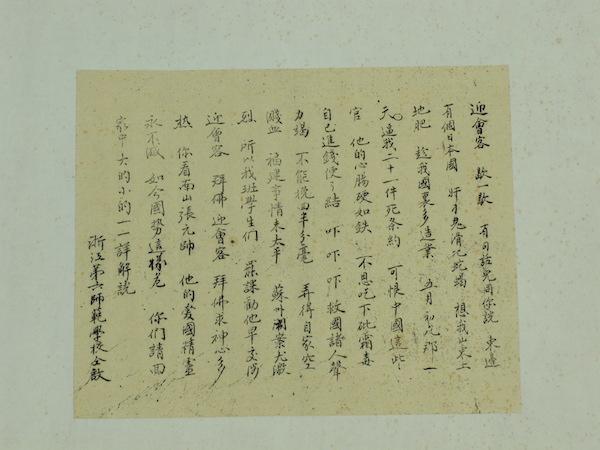 迎會客 歇一歇 有句話兒同你說 東邊
有個日本國 奸刁鬼滑比蛇蝎 想我山東土
地肥 趁我國裏多造業 五月初九那一
天 逼我二十一件死条約 可恨中國這些
官 他的心腸硬如鉄 不思吃下砒霜毒
自己進錢便了結 吓吓吓 救國諸人聲
力竭 不能挽回半分毫 弄得自家空
濺血 福建事情未太平 蘇州閙案尤激
烈 所以我班學生们 罷課勸他早交涉
迎會客 拜佛 迎會客 拜佛求神心多
熱 你看南山張元帥 他的爱國精靈
永不滅 如今國勢這樣危 你們請回
家中 大的小的一一詳解說
浙江第六師範學校仝啟